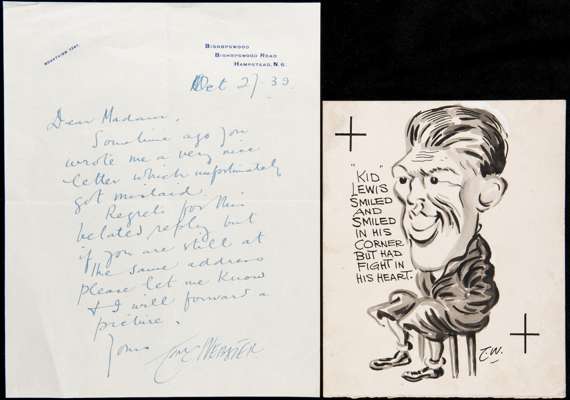 MOUNTVIEW 1341.
BISHOPSWOOD
BISHOPSWOOD ROAD
HAMPSTEAD, N. 6.
Oct 27 - 39
Dear Madam,
Sometime ago you
wrote me a very nice
letter which unfortunately
got mislaid.
Regrets for this
belated reply but
if you are still at
the same address
please let me know
& I will forward a
picture.
Yours
Tom WEBSTER
"KID"
LEWIS
SMILED
AND
SMILED
IN HIS
CORNER
BUT HAD
FIGHT IN
HIS HEART.
T.W.